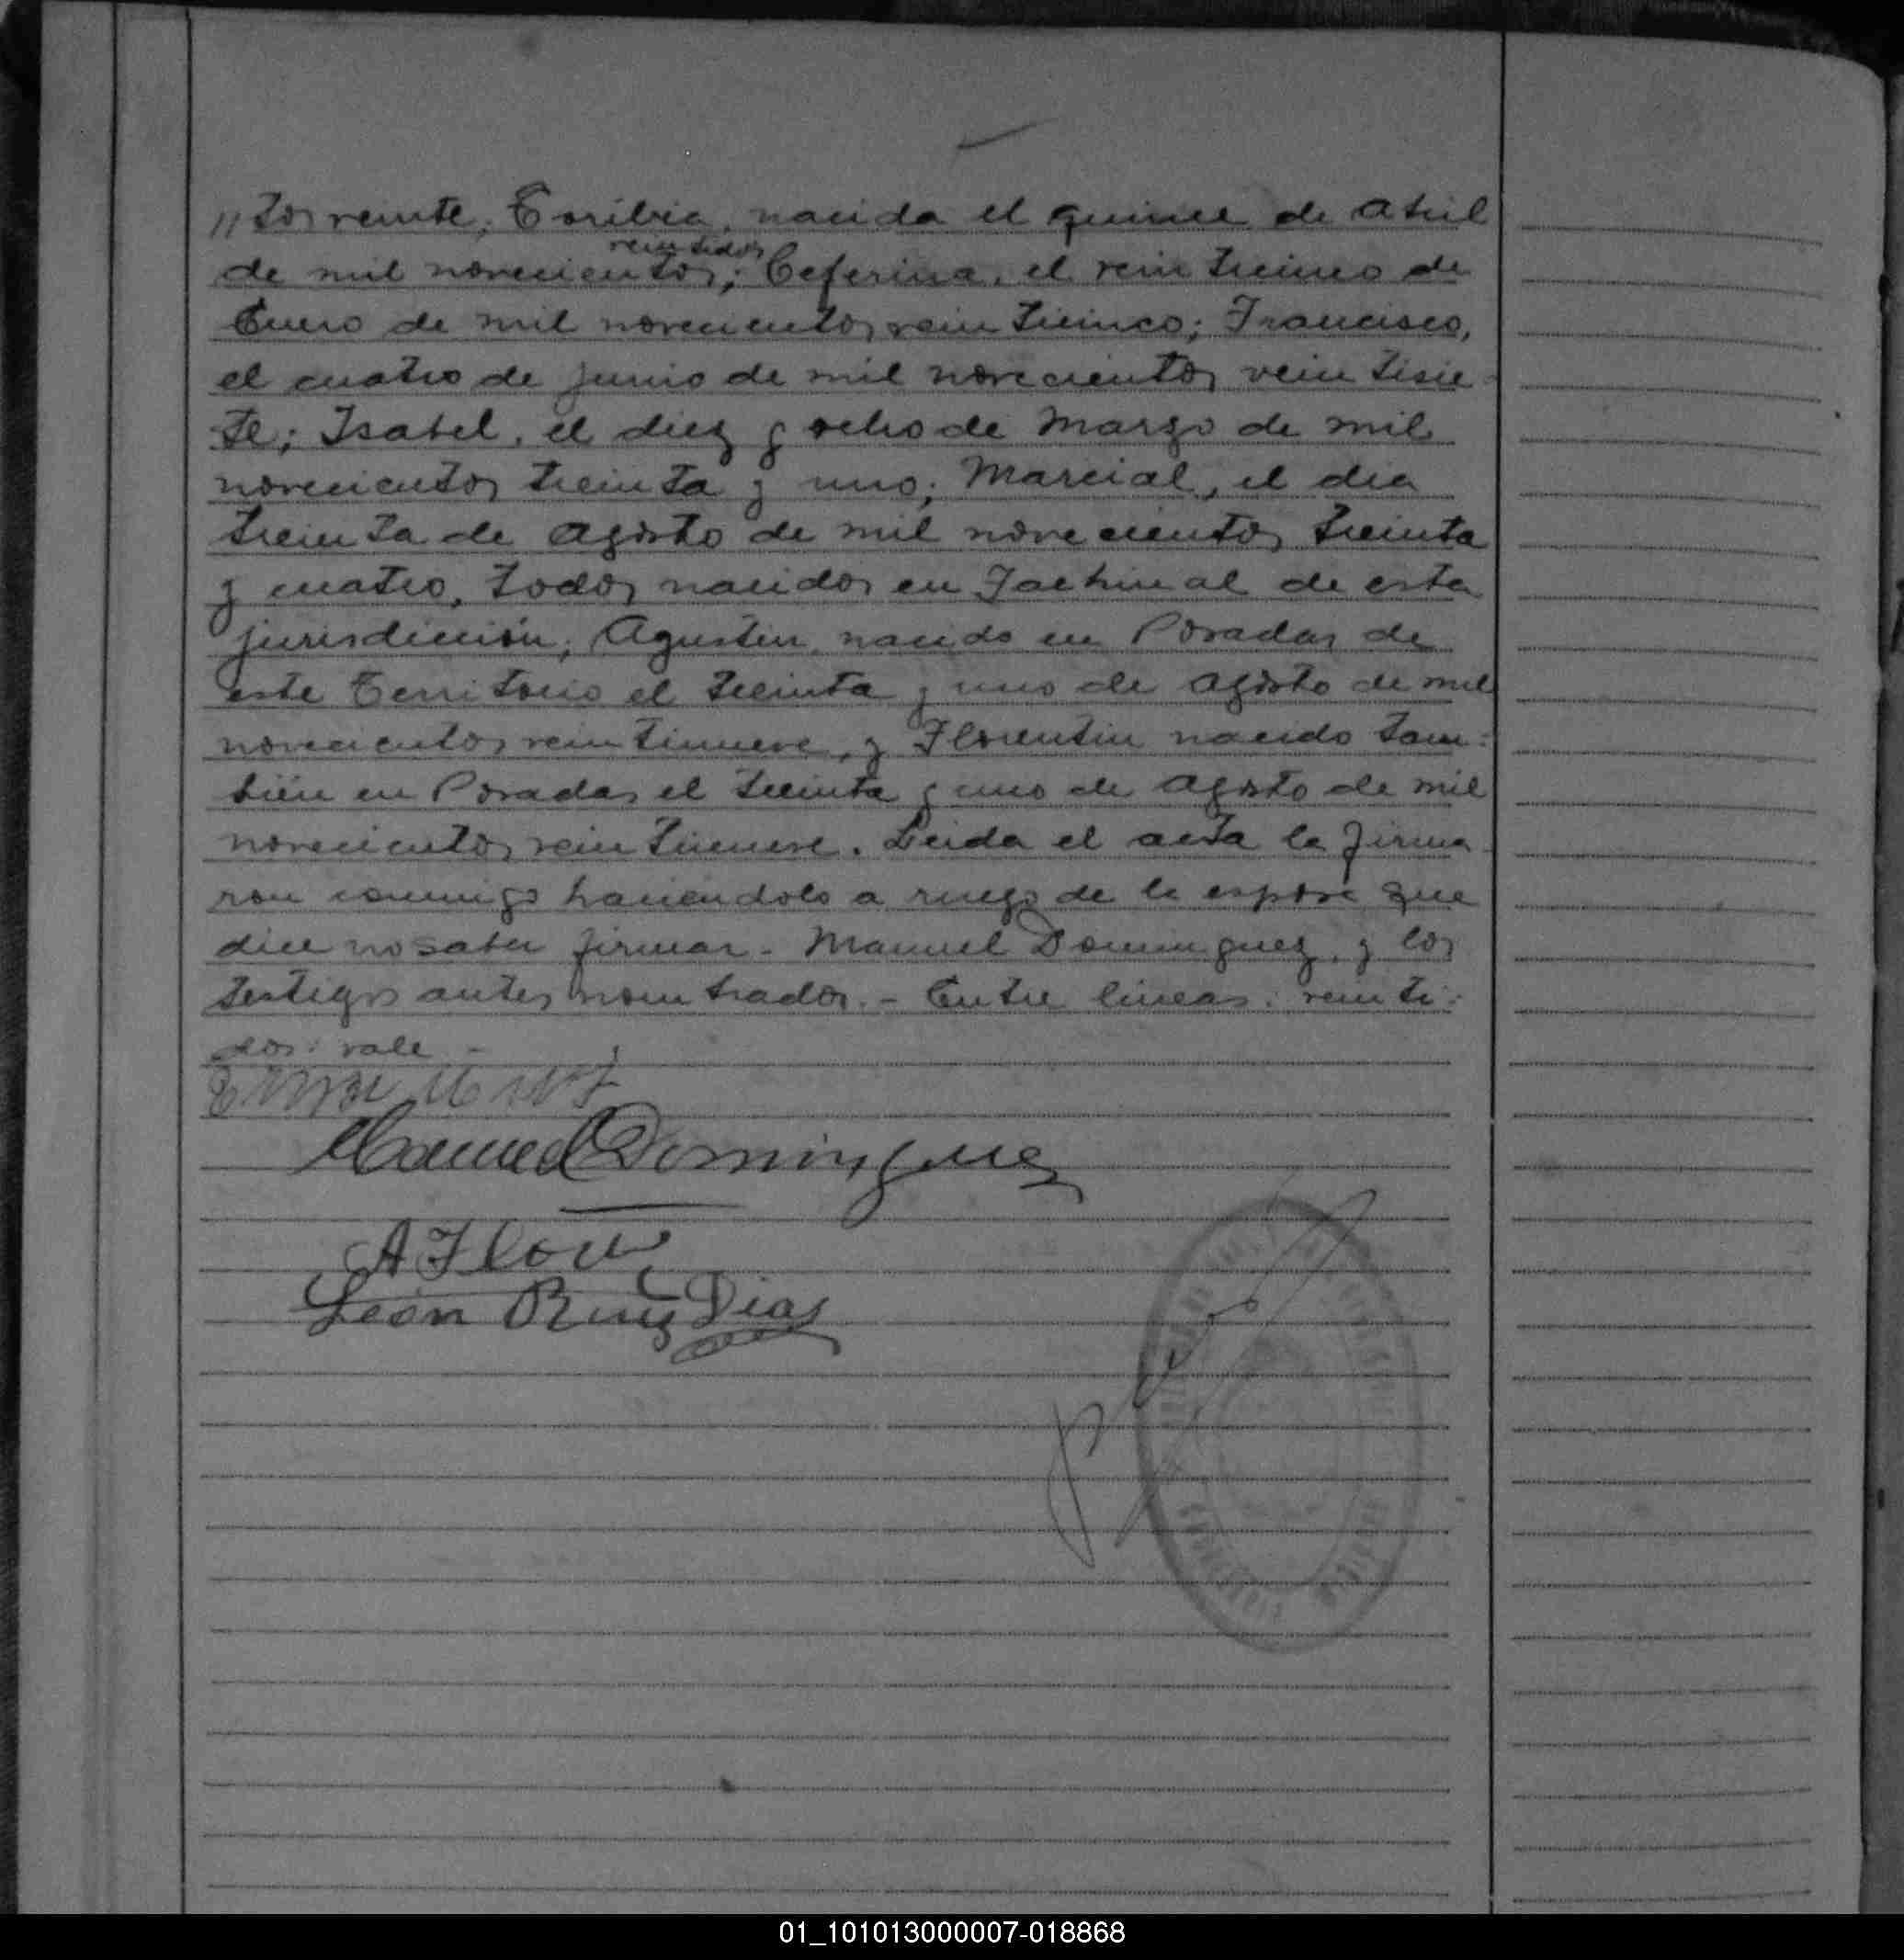 "tos veinte; Toribia, nacida el quince de abril
veintidos
de mil novecientos; Ceferina, el veinticinco de
Enero de mil novecientos veinticinco; Francisco,
el cuatro de junio de mil novecientos veintisie-
te; Isabel, el diez y ocho de Marzo de mil
novecientos treinta y uno; Marcial, el dia
treinta de Agosto de mil novecientos treinta
y cuatro, todos nacidos en de esta
jurisdicción; Agustin, nacido en Posadas de
este Territorio el treinta y uno de Agosto de mil
novecientos veintinueve, y Florentin nacido tam-
bién en Posadas el treinta y uno de Agosto de mil
novecientos veintinueve. Leida el acta la firma-
ron conmigo haciendolo a ruego de la esposa que
dice no saber firmar - Manuel Dominguez, y los
testigos antes nombrados. - Entre lineas: veinti-
dos: vale -
Manuel Dominguez
A Flores
León Ruiz Diaz
01_101013000007-018868